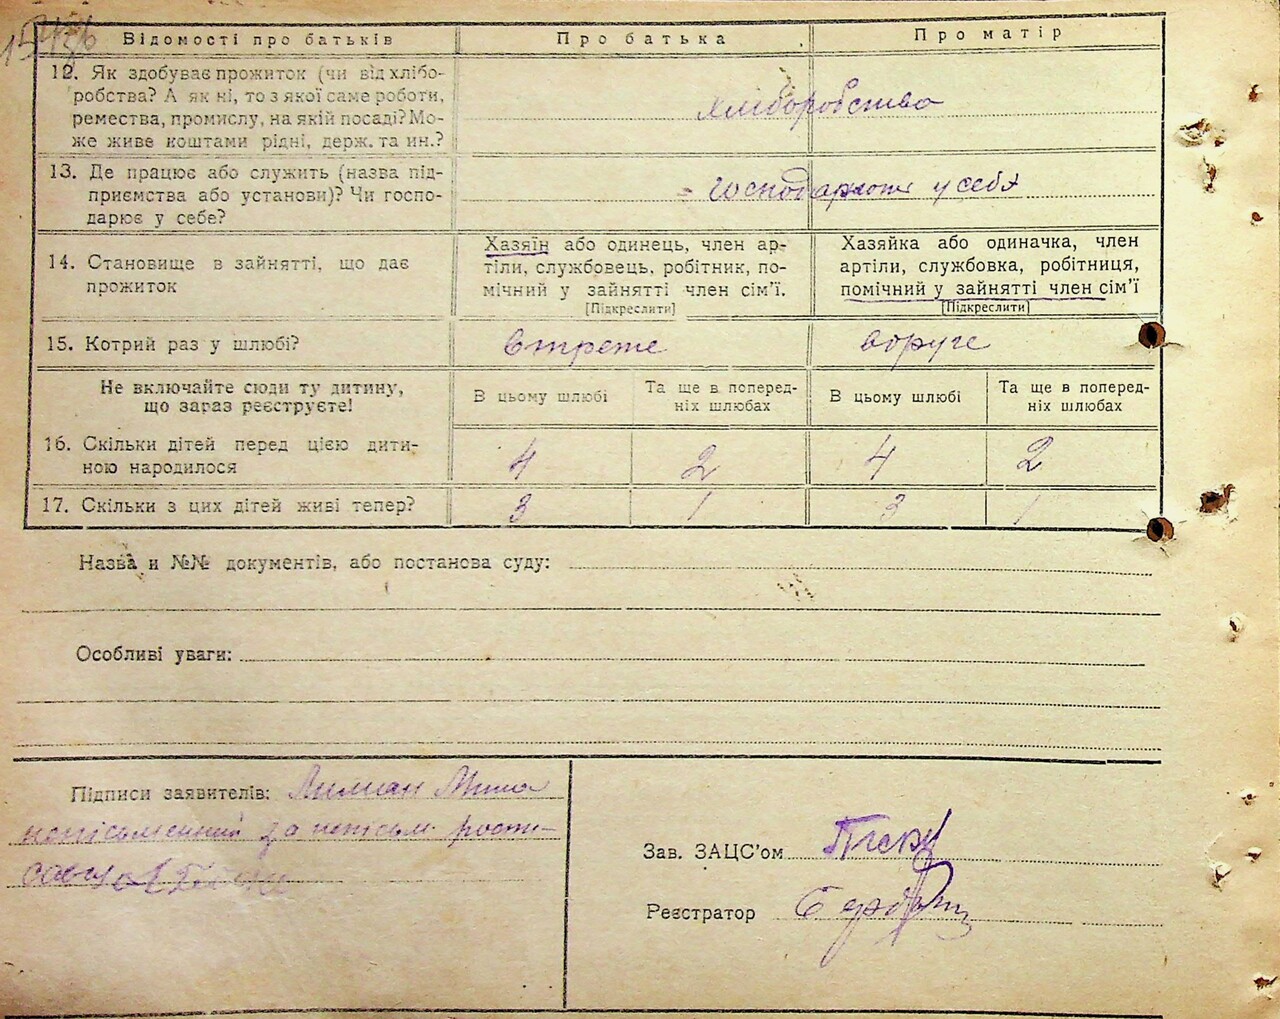 Відомості про батьків Про батька Про матір
12. Як здобуває прожиток (чи від хлібо-
робства? А як ні, то з якої саме роботи,
ремества, промислу, на якій посаді? Мо-
же живе коштами рідні, держ. та ин.?
хліборобство
13. Де працює або служить (назва під-
приємства або установи)? Чи госпо-
дарює у себе?
господарюють у себе
14. Становище в зайнятті, що дає
прожиток
Хазяїн або одинець, член ар-
тіли, службовець, робітник, по-
мічний у зайнятті член сім'ї.
[Підкреслити]
Хазяйка або одиначка, член
артіли, службовка, робітниця,
помічний у зайнятті член сім'ї
[Підкреслити]
15. Котрий раз у шлюбі? втретє вдруге
Не включайте сюди ту дитину,
що зараз реєструєте!
В цьому шлюбі
Та ще в поперед-
ніх шлюбах
В цьому шлюбі
Та ще в поперед-
ніх шлюбах
16. Скільки дітей перед цією дити-
ною народилося
4 2 4 2
17. Скільки з цих дітей живі тепер? 3 1 3 1
Назва и №№ документів, або постанова суду:
Особливі уваги:
Підписи заявителів:
неписьменний за неписьм. розпи-
сався
Зав. ЗАЦС'ом
Реєстратор